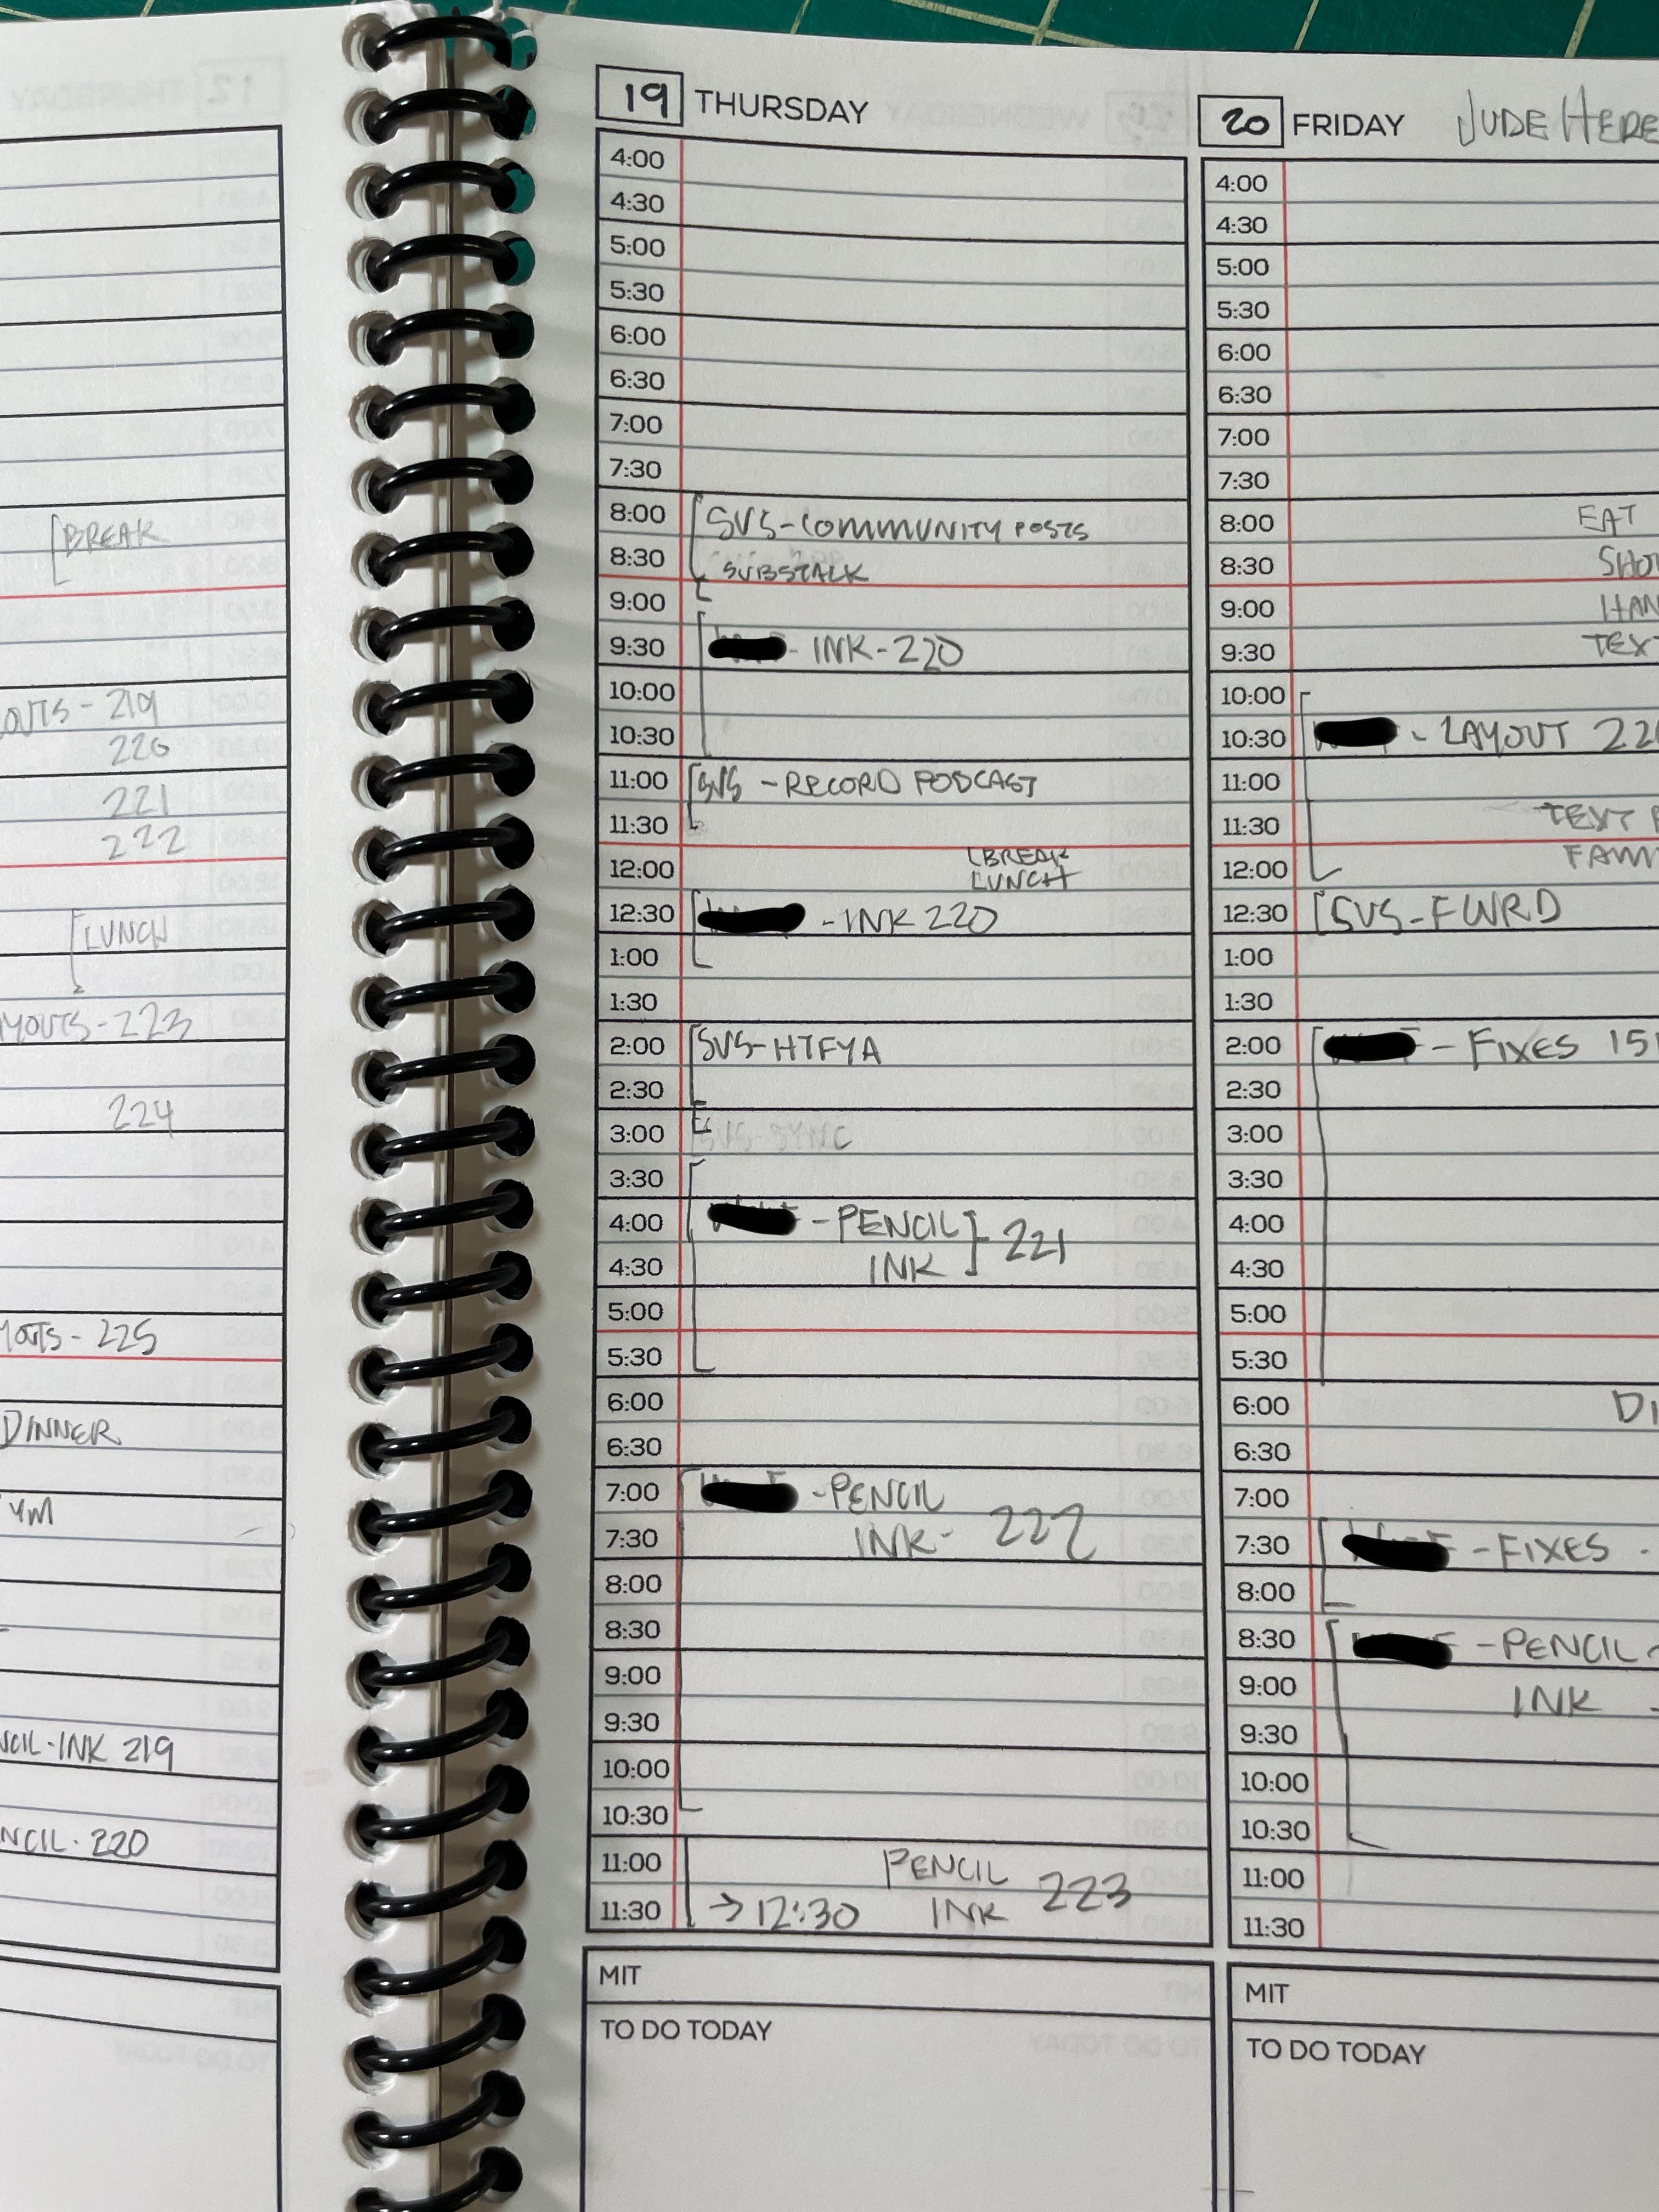 BREAK
219
220
221
222
LUNCH
223
224
225
DINNER
INK 219
220
19 THURSDAY
4:00
4:30
5:00
5:30
6:00
6:30
7:00
7:30
8:00 SVS-COMMUNITY POSTS
8:30 SUBSTACK
9:00
9:30 - INK-220
10:00
10:30
11:00 SVS - RECORD PODCAST
11:30
BREAK
12:00 LUNCH
12:30 - INK 220
1:00
1:30
2:00 SVS-HTFYA
2:30
3:00 SVS-SYNC
3:30
4:00 - PENCIL 221
4:30 INK
5:00
5:30
6:00
6:30
7:00 - PENCIL
7:30 INK - 222
8:00
8:30
9:00
9:30
10:00
10:30
11:00 PENCIL 223
11:30 → 12:30 INK
MIT
TO DO TODAY
20 FRIDAY JUDE HERE
4:00
4:30
5:00
5:30
6:00
6:30
7:00
7:30
8:00 EAT
8:30
9:00
9:30
10:00
10:30 - LAYOUT
11:00
11:30 TEXT
12:00
12:30 SVS-FWRD
1:00
1:30
2:00 - FIXES
2:30
3:00
3:30
4:00
4:30
5:00
5:30
6:00
6:30
7:00
7:30 - FIXES -
8:00
8:30 - PENCIL -
9:00 INK -
9:30
10:00
10:30
11:00
11:30
MIT
TO DO TODAY